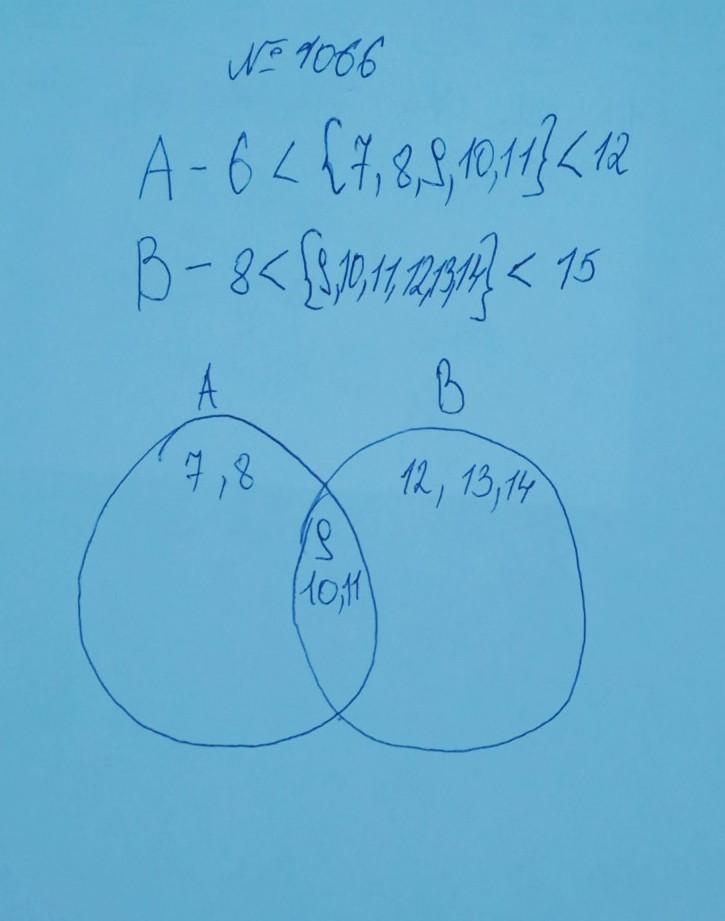 № 1066
A - 6 < {7, 8, 9, 10, 11} < 12
B - 8 < {9, 10, 11, 12, 13, 14} < 15
A B
7, 8 12, 13, 14
9
10, 11